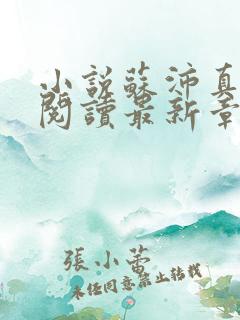 小說蘇沛真
閱讀最新章
張小蕾
未經同意禁止轉載